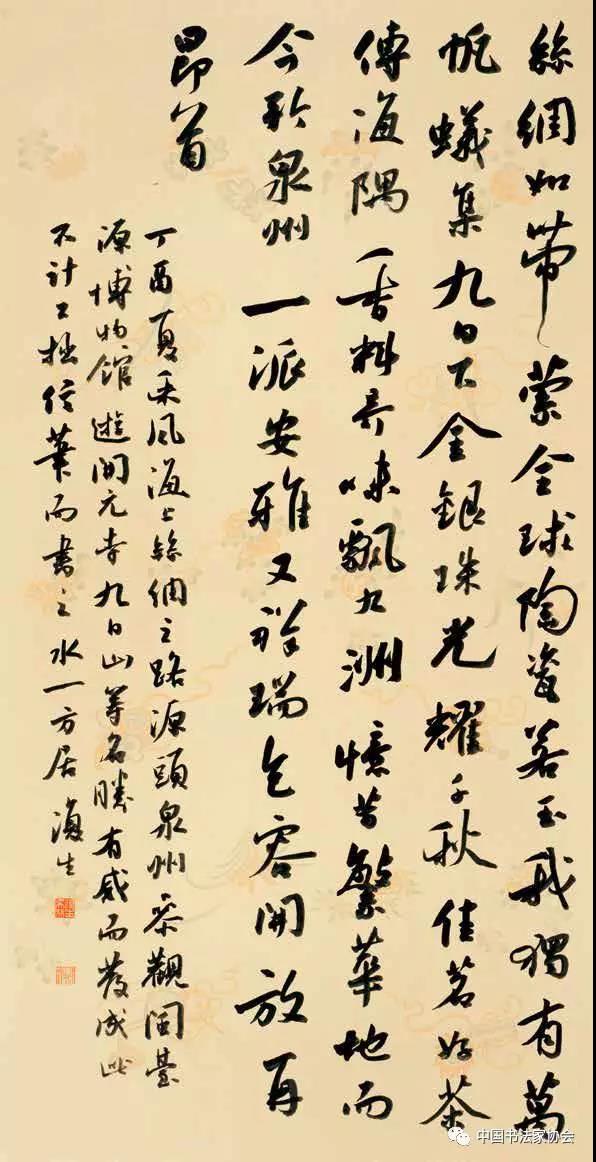 絲綢如帶縈全球陶瓷若玉我獨有萬
帆蟻集九日下金銀珠光耀千秋佳茗好茶
傳海隅香料奇味飄九洲憶昔繁華地而
今聆泉州一派安雅又祥瑞包容開放再
昂首
丁酉夏采風海上絲绸之路源頭泉州参觀闽臺
源博物館遊開元寺九日山等名勝有感而發成此
不計工拙信筆而書之水一方居海生
中国书法家协会